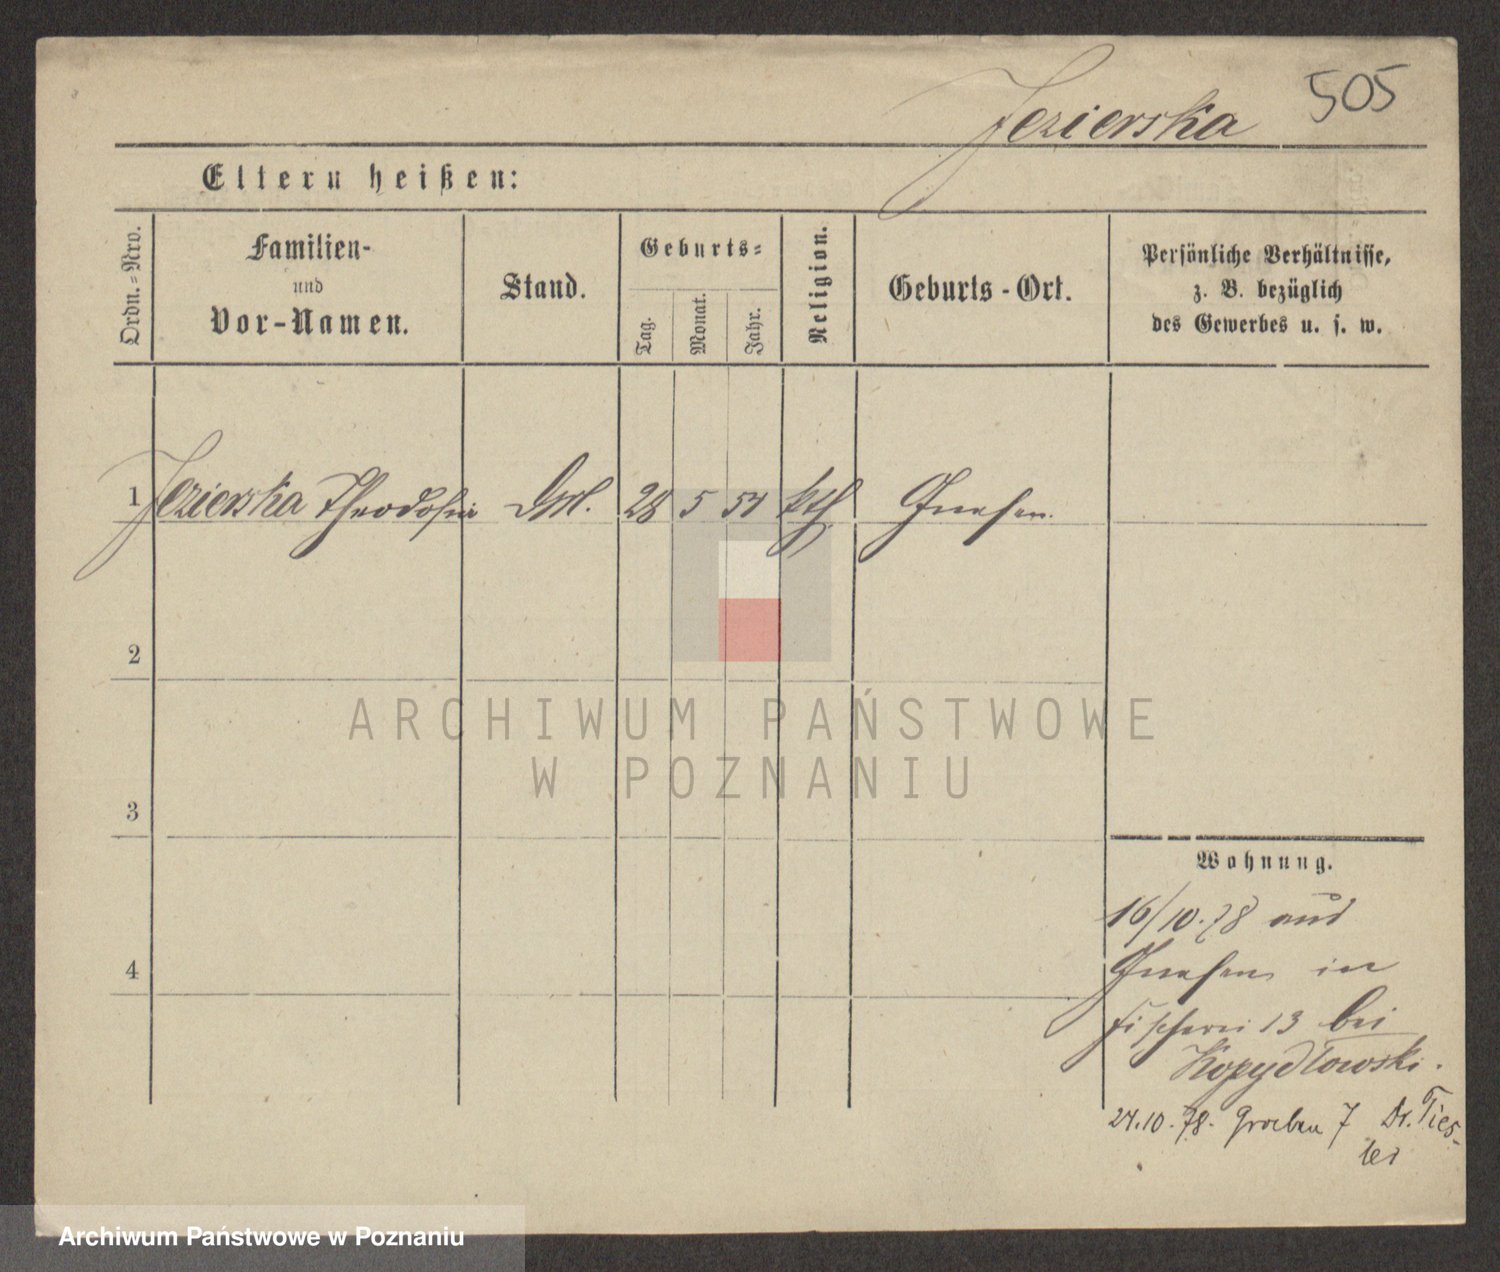 505
Jezierska
Eltern heißen:
Ordn.-Nro.
Familien-
und
Vor-Namen.
Stand.
Geburts-
Tag.
Monat.
Jahr.
Religion.
Geburts-Ort.
Persönliche Verhältnisse,
z. B. bezüglich
des Gewerbes u. s. w.
1 Jezierska Theodosia 28 5 54 kth Gnesen.
2
3
4
Wohnung.
16/10.78 aus
Gnesen in
Fischerei 13 bei
Kopydlowski.
24.10.78. Graben 7 Dr.
ARCHIWUM PAŃSTWOWE
W POZNANIU
Archiwum Państwowe w Poznaniu